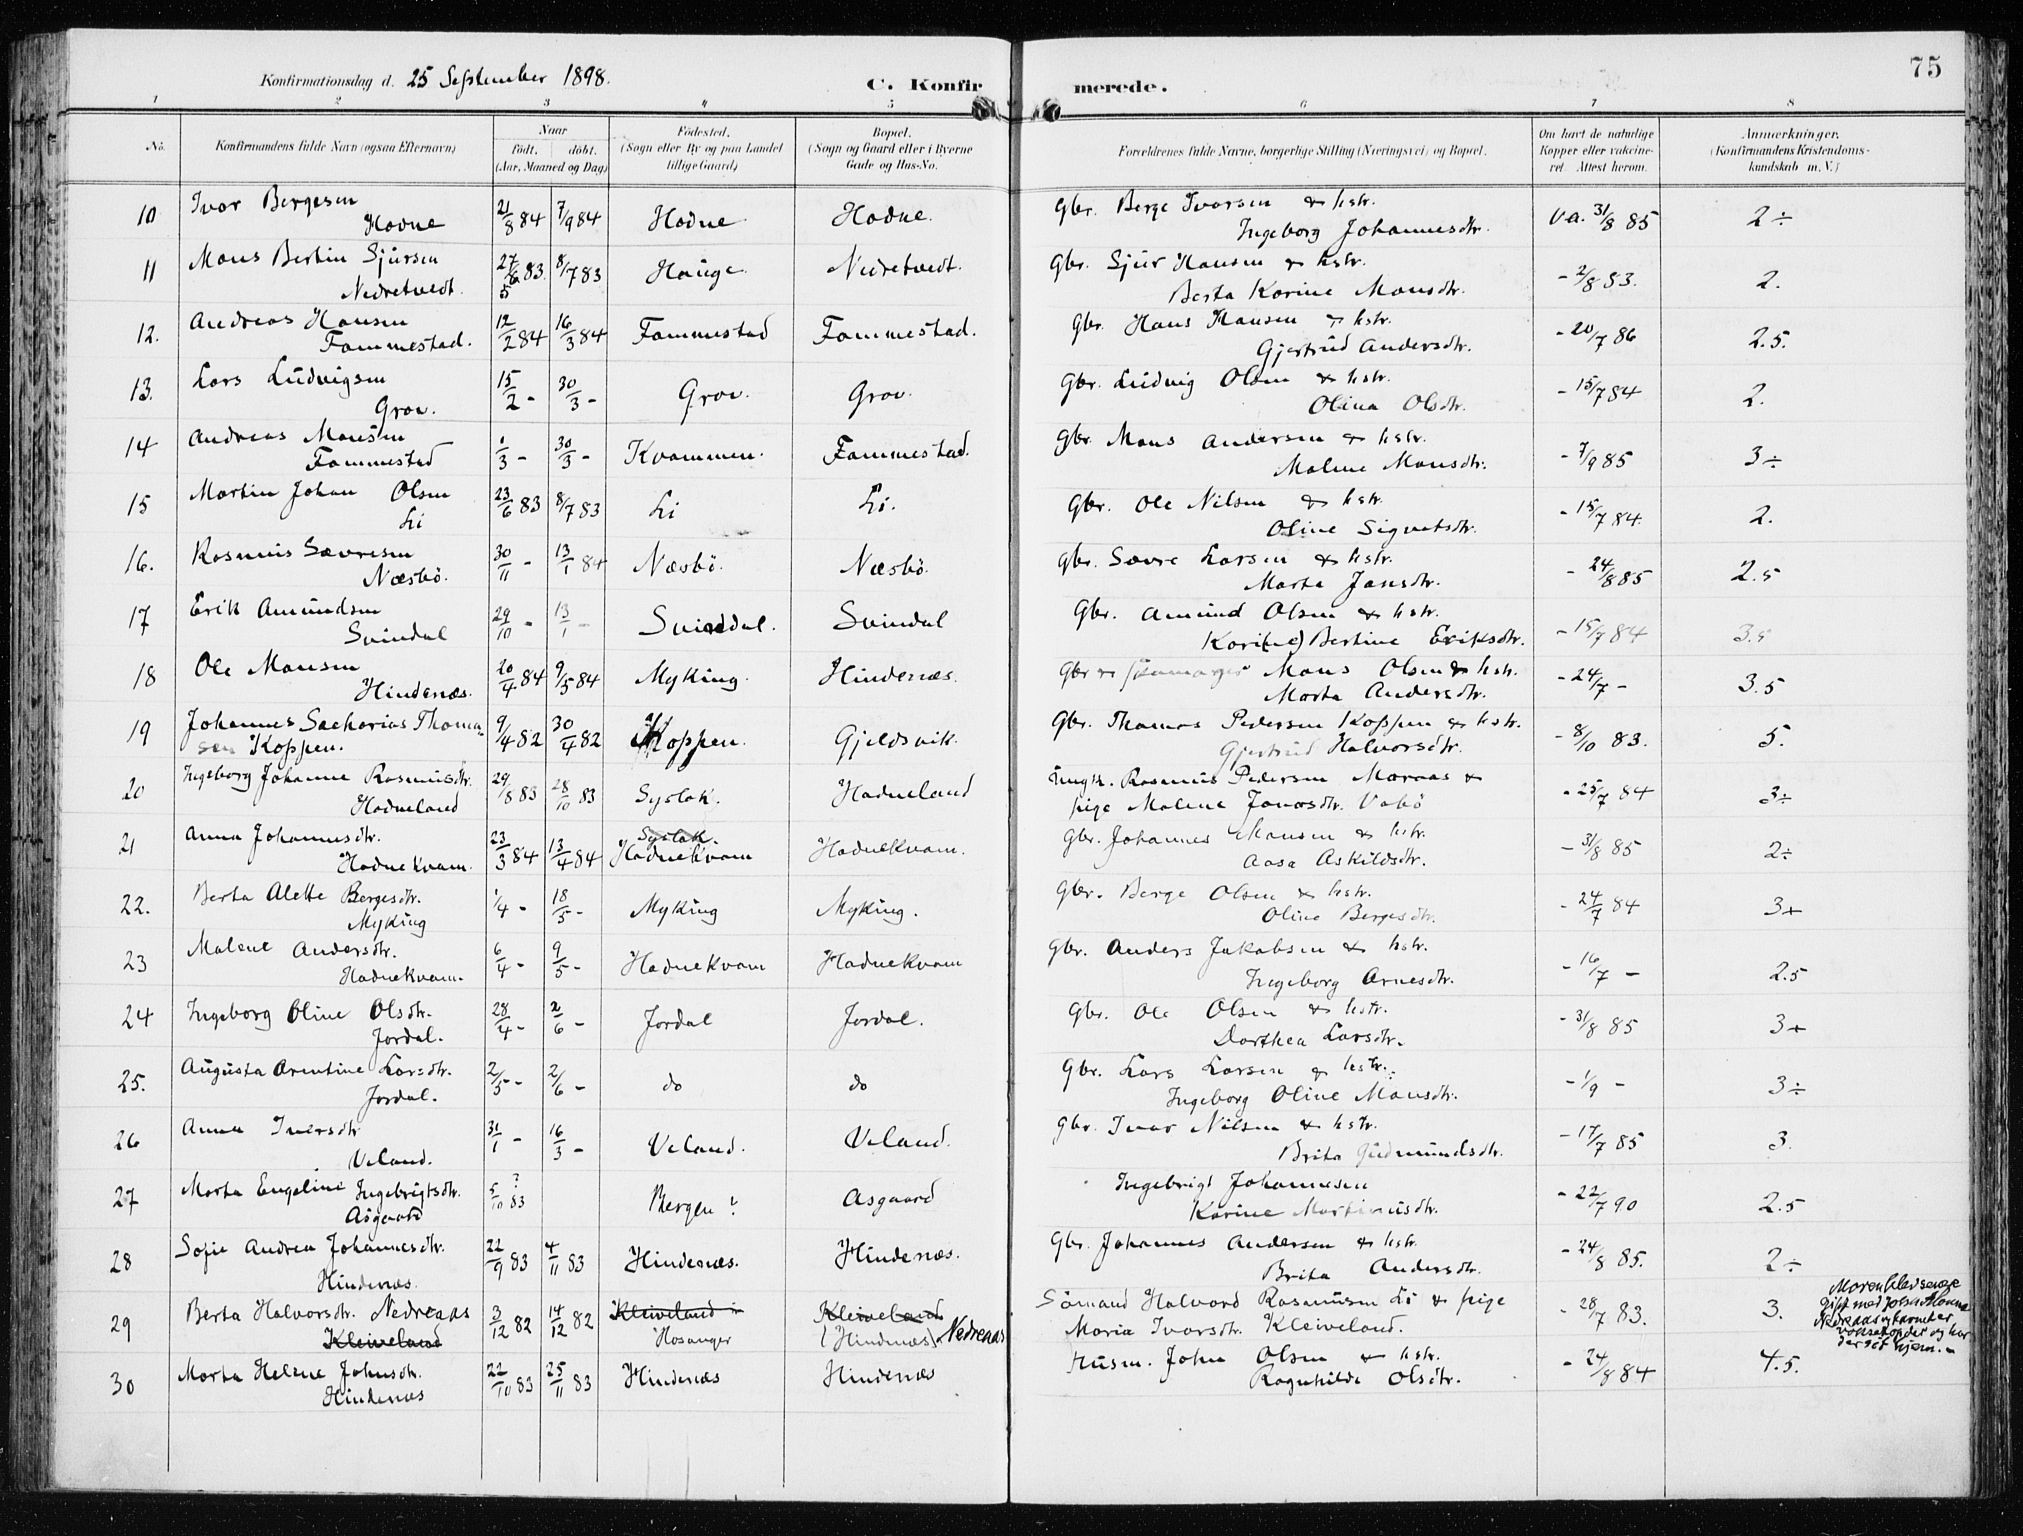 75
Konfirmationsdag d. 25 September 1898.
C. Konfirmerede.
1 2 3 4 5 6 7 8
No. Konfirmandens fulde Navn (ogsaa Efternavn) Naar Født. døbt. (Aar, Maaned og Dag) Fødested. (Sogn eller By og paa Landet tillige Gaard) Bopæl. (Sogn og Gaard eller i Byerne Gade og Hus-No. Forældrenes fulde Navne, borgerlige Stilling (Næringsvei) og Bopæl. Om havt de naturlige Kopper eller vakcineret. Attest herom. Anmærkninger. (Konfirmandens Kristendomskundskab m. V.)
10 Ivar Bergesen 21/8 84 7/9 84 Hodne Hodne. Gbr. Berge Ivarsen & hstr. va. 31/8 85 2÷
Hodne Ingeborg Johannesdtr.
11 Mons Bertin Sjursen 27/5 83 8/7 83 Hauge. Nedretvedt. Gbr. Sjur Hansen & hstr. - 2/8 83. 2.
Nedretvedt. Berta Karine Monsdtr.
12. Andreas Hansen 12/2 84 16/3 84 Fammestad Fammestad. Gbr. Hans Hansen & hstr. - 20/7 86 2.5.
Fammestad. Gjertrud Andersdtr.
13. Lars Ludvigsen 15/2 - 30/3 - Grov. Grov. Gbr. Ludvig Olsen & hstr. - 15/7 84 2.
Grov. Olina Olsdtr.
14 Andreas Monsen 1/3 - 30/3 - Kvammen. Fammestad. Gbr. Mons Andersen & hstr. - 7/9 85 3÷
Fammestad Malene Monsdtr.
15 Martin Johan Olsen 23/6 83 8/7 83 Li Li. Gbr. Ole Nilsen & hstr. - 15/7 84. 2.
Li Oline Sigvatsdtr.
16. Rasmus Sævresen 30/11 - 13/1 84 Næsbø. Næsbø. Gbr. Sævre Larsen & hstr. - 24/8 85 2.5
Næsbø. Marta Jansdtr.
17 Erik Amundsen 29/10 - 13/1 - Svindal. Svindal Gbr. Amund Olsen & hstr. - 15/7 84 3.5
Svindal Kari(ne) Bertine Eriksdtr.
18 Ole Monsen 20/4 84 9/5 84 Myking. Hindenæs. Gbr & Mons Olsen & hstr. - 24/7 - 3.5
Hindenæs. Marta Andersdtr.
19 Johannes Sacharias Thoma- 9/4 82 30/4 82 Koppen. Gjeldsvik. Gbr. Thomas Pedersen Koppen & hstr. - 8/10 83. 5.
sen Koppen. Gjertrud Halvorsdtr.
20 Ingeborg Johanne Rasmusdtr. 29/8 83 28/10 83 Syslak. Hodneland Ungk. Rasmus Pedersen Moraas & - 25/7 84 3÷
Hodneland pige Malene Jonasdtr. Vabø
21 Anna Johannesdtr. 23/3 84 13/4 84 Syslak. Hodnekvam Hodnekvam. Gbr. Johannes Hansen & hstr. - 31/8 85 2÷
Hodnekvam. Aasa Askildsdtr.
22. Berta Alette Bergesdtr. 1/4 - 18/5 - Myking Myking. Gbr. Berge Olsen & hstr. - 24/7 84 3+
Myking Oline Bergesdtr.
23 Malene Andersdtr. 6/4 - 9/5 - Hodnekvam Hodnekvam Gbr. Anders Jakobsen & hstr. - 16/7 - 2.5
Hodnekvam. Ingeborg Arnesdtr.
24 Ingeborg Oline Olsdtr. 28/4 - 2/6 - Jordal Jordal. Gbr. Ole Olsen & hstr. - 31/8 85 3+
Jordal. Dorthea Larsdtr.
25. Augusta Arentine Larsdtr. 2/5 - 2/6 - do do Gbr. Lars Larsen & hstr. - 1/9 - 3÷
Jordal. Ingeborg Oline Monsdtr.
26 Anna Iversdtr 31/1 - 16/3 - Veland. Veland. Gbr. Ivar Nilsen & hstr. - 17/7 85 3.
Veland. Brita Gudmundsdtr.
27 Marta Engeline Ingebrigtsdtr. 5/10 83 ? Bergen? Asgaard Ingebrigt Johannesen - 22/7 90 2.5
Asgaard Karine Martinusdtr.
28 Sofie Andrea Johannesdtr. 22/9 83 4/11 83 Hindenæs. Hindenæs. Gbr. Johannes Andersen & hstr. - 24/8 85. 2÷
Hindenæs. Brita Andersdtr.
29 Berta Halvorsdtr. Nedreaas 3/12 82 14/12 82 Kleiveland Kleiveland Sømand Halvord Rasmusen Li & pige - 28/7 83. 3.
Kleiveland Hosanger (Hindenæs). Nedreaas Maria Ivarsdtr. Kleiveland.
gift med
og har
der sit hjem.
30 Marta Helene Johnsdtr. 22/10 83 25/11 83 Hindenæs Hindenæs Husm. John Olsen & hstr. - 24/8 84 4.5.
Hindenæs Ragnhilde Olsdtr.